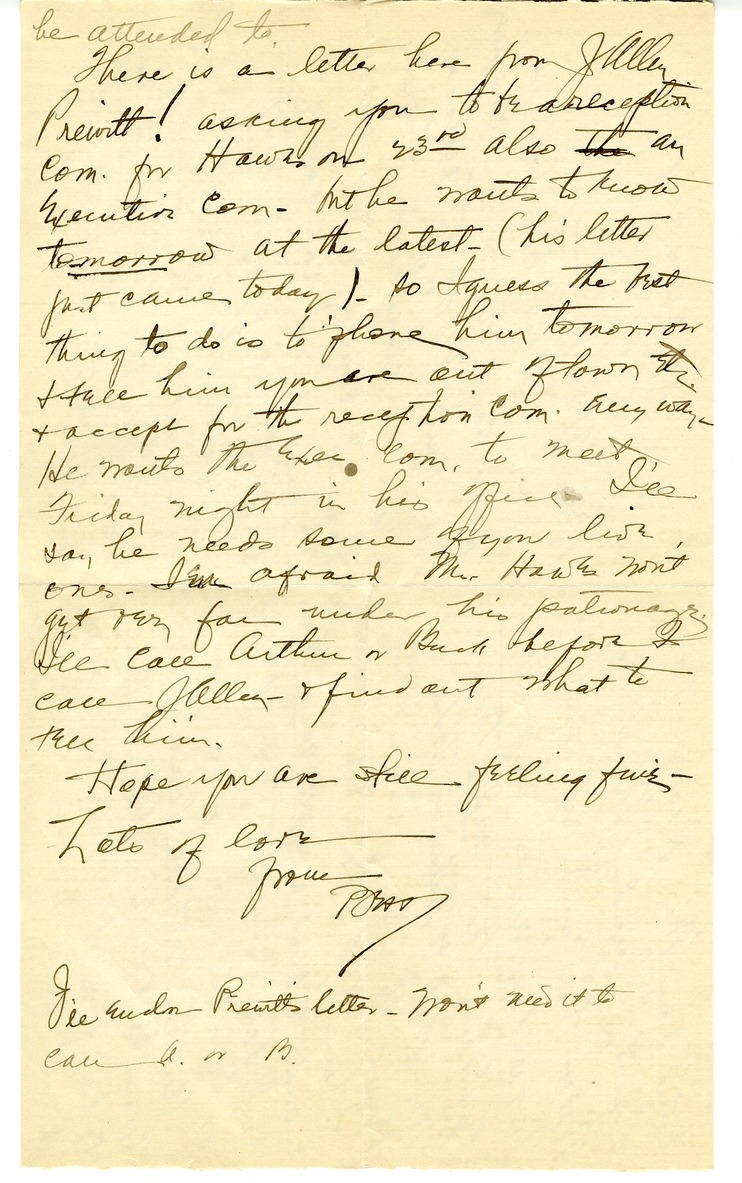 be attended to
There is a letter here from J Allen
Prewitt! asking you to be a reception
Com. for Hawks on 23rd also the an
Executive Com - but he wants to know
tomorrow at the latest - (his letter
just came today) - so I guess the best
thing to do is to 'phone him tomorrow
& tell him you are out of town
& accept for the reception Com. any way -
He wants the Exec. Com. to meet
Friday night in his office I'll
say he needs some of you live
ones - I'm afraid Mr. Hawks won't
get very far under his patronage.
I'll call Arthur or Buck before I
call J Allen - & find out what to
tell him.
Hope you are still feeling fine -
Lots of love
from
Bess
I'll enclose Prewitt's letter - Won't need it to
call A. or B.